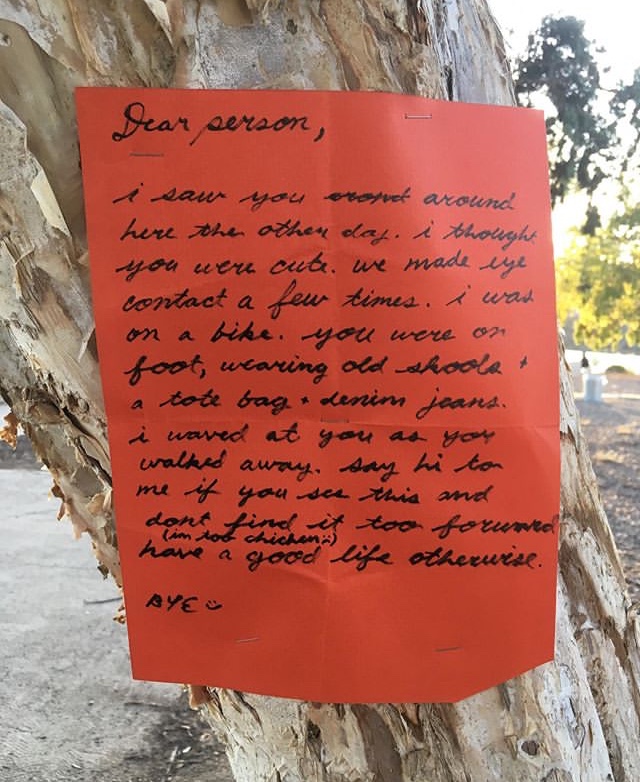 Dear person,
i saw you around
here the other day. i thought
you were cute. we made eye
contact a few times. i was
on a bike. you were on
foot, wearing old skools +
a tote bag + denim jeans.
i waved at you as you
walked away. say hi to
me if you see this and
dont find it too forward
(im too chicken :))
have a good life otherwise.
BYE